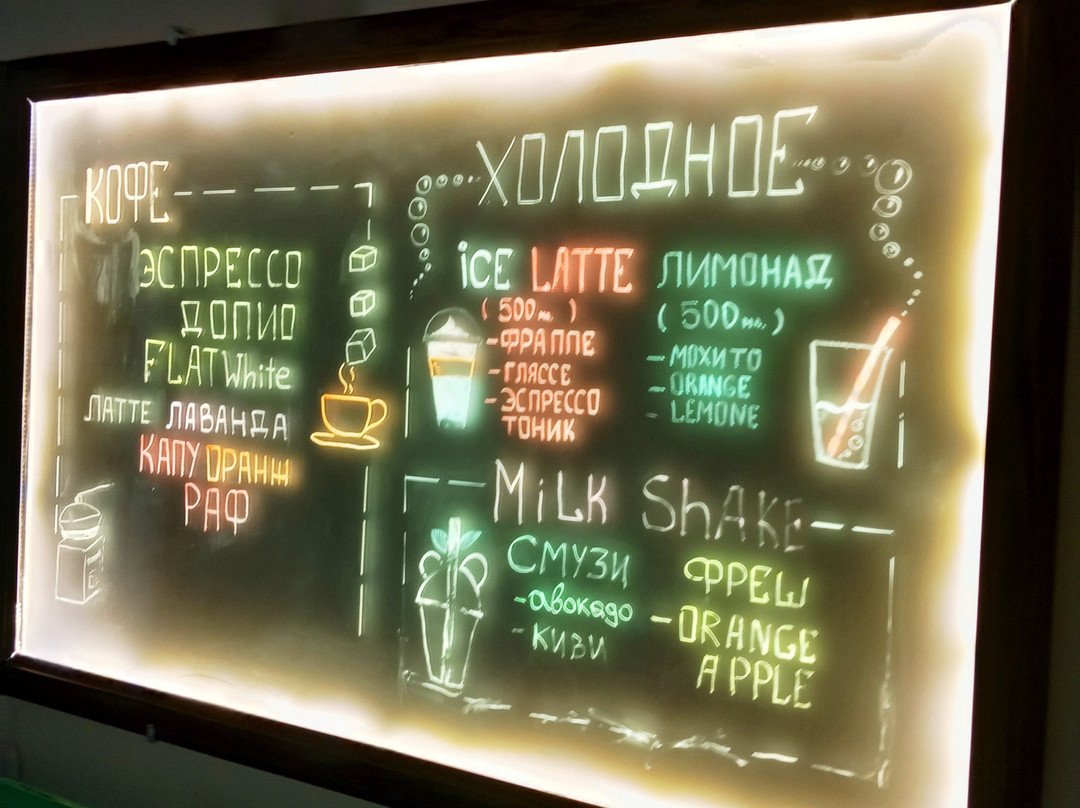 КОФЕ
ЭСПРЕССО
ДОПИО
FLAT White
ЛАТТЕ ЛАВАНДА
КАПУ ОРАНЖ
РАФ
ХОЛОДНОЕ
iCE LATTE
(500мл.)
-ФРАППЕ
-ГЛЯССЕ
-ЭСПРЕССО
ТОНИК
ЛИМОНАД
(500мл.)
-МОХИТО
-ORANGE
-LEMONE
MiLK ShAKE
СМУЗИ
-авокадо
-КИВИ
ФРЕШ
-ORANGE
APPLE